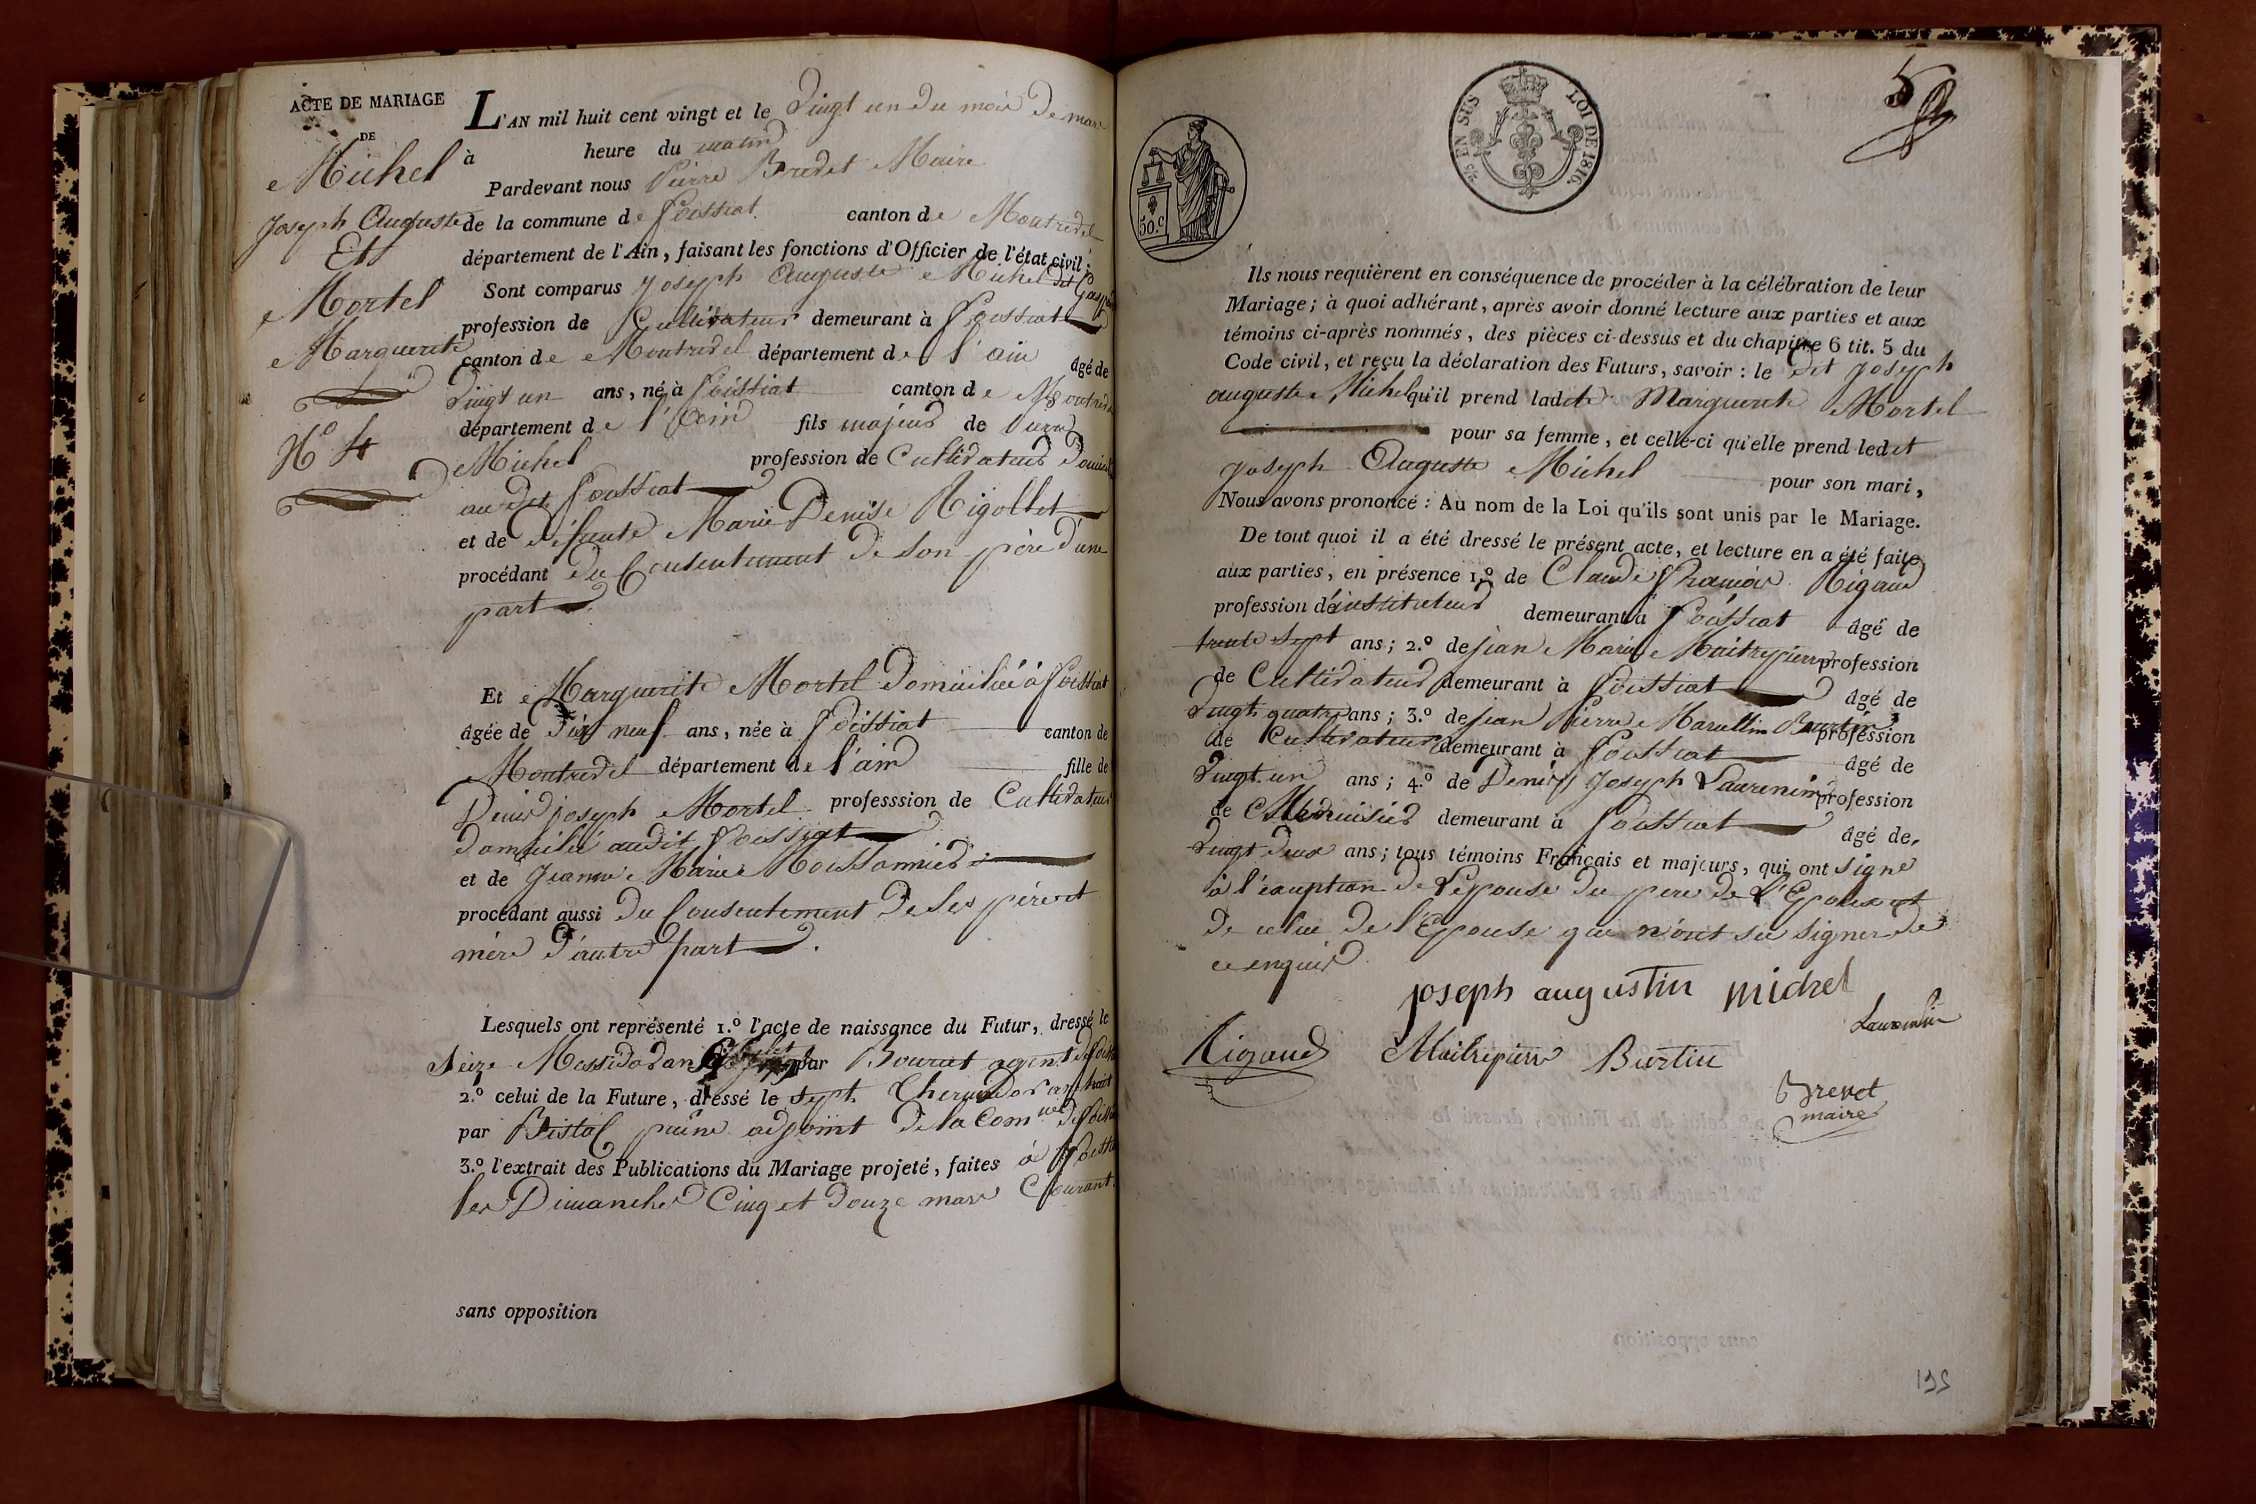 ACTE DE MARIAGE
DE
Michel
Joseph Auguste
Et
Mortel
Marguerite
N.º 4
L'AN mil huit cent vingt et le Vingt un du mois de mars
à heure du matin
Pardevant nous Pierre Brevet Maire
de la commune de Foissiat canton de Montrevel
département de l'Ain, faisant les fonctions d'Officier de l'état civil;
Sont comparus Joseph Auguste Michel dit
profession de Cultivateur demeurant à Foissiat
canton de Montrevel département de l'ain âgé de
Vingt un ans, né à Foissiat canton de Montrevel
département de l'ain fils majeur de Pierre
Michel profession de Cultivateur Domicilié
au dit Foissiat
et de défunte Marie Denise Rigollet
procédant du Consentement de son père d'une
part
Et Marguerite Mortel Domiciliée à Foissiat
âgée de Dix neuf ans, née à Foissiat canton de
Montrevel département de l'ain fille de
Denis joseph Mortel professsion de Cultivateur
domicilié audit Foissiat
et de Jeanne Marie Moissonnier
procédant aussi du Consentement De Ses père et
mère d'autre part.
Lesquels ont représenté 1.º l'acte de naissance du Futur, dressé le
Seize Messidor an par agent de
2.º celui de la Future, dressé le sept Thermidor an huit
par adjoint De la Com.ne de Foissiat
3.º l'extrait des Publications du Mariage projeté, faites à Foissiat
les Dimanches Cinq et Douze mars Courant.
sans opposition
5
25 EN SUS LOI DE 1816.
50.C
Ils nous requièrent en conséquence de procéder à la célébration de leur
Mariage; à quoi adhérant, après avoir donné lecture aux parties et aux
témoins ci-après nommés, des pièces ci-dessus et du chapitre 6 tit. 5 du
Code civil, et reçu la déclaration des Futurs, savoir: le dit Joseph
auguste Michel qu'il prend ladite Marguerite Mortel
pour sa femme, et celle-ci qu'elle prend ledit
Joseph Auguste Michel pour son mari,
Nous avons prononcé: Au nom de la Loi qu'ils sont unis par le Mariage.
De tout quoi il a été dressé le présent acte, et lecture en a été faite
aux parties, en présence 1.º de Claude François Rigaud
profession de instituteur demeurant à Foissiat âgé de
trente sept ans; 2.º de jean Marie Maitrepierre profession
de Cultivateur demeurant à Foissiat âgé de
Vingt quatre ans; 3.º de jean Pierre Marcellin Burtin profession
de Cultivateur demeurant à Foissiat âgé de
Vingt un ans; 4.º de Denis Joseph Laurencin profession
de Menuisier demeurant à Foissiat âgé de
Vingt Deux ans; tous témoins Français et majeurs, qui ont signé
à l'éxception de l'Epouse du père de l'Epoux et
de celui de l'Epouse qui n'ont su signer de
ce enquis
joseph augustin michel
Laurencin
Rigaud Maitrepierre Burtin
Brevet
maire
195